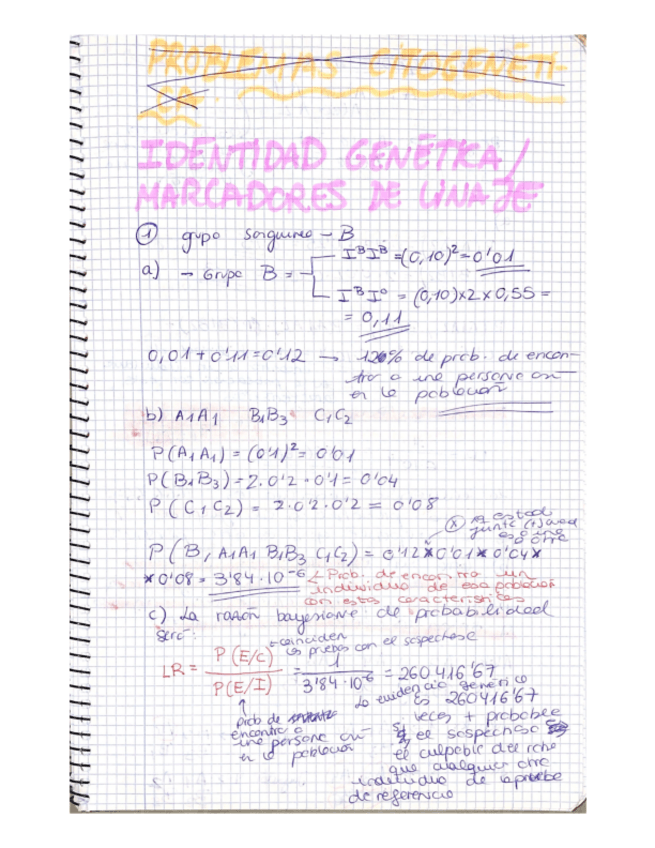 PROBLEMAS CITOGENÉTI-
CA
IDENTIDAD GENÉTICA/
MARCADORES DE LINAJE
① grupo sanguíneo - B
a) → Grupo B = I^B I^B = (0,10)² = 0'01
I^B I^0 = (0,10)x2x0,55 =
= 0,11
0,01 + 0'11 = 0'12 → 12% de prob. de encon-
trar a una persona así
en la población
b) A₁A₁ B₁B₃ C₁C₂
P(A₁A₁) = (0'1)² = 0'01
P(B₁B₃) = 2·0'2·0'1 = 0'04
P(C₁C₂) = 2·0'2·0'2 = 0'08
P(B, A₁A₁ B₁B₃ C₁C₂) = 0'12 x 0'01 x 0'04 x
x 0'08 = 3'84·10⁻⁶ ← Prob. de encontrar un
individuo de esa población
con estas características
c) La razón bayesiana de probabilidad
será:
← coinciden
las pruebas con el sospechoso
LR = P(E/C) / P(E/I) = 1 / 3'84·10⁻⁶ = 260416'67
↑
prob de
encontrar a
una persona así
en la población
La evidencia genética
es 260416'67
veces + probable
si el sospechoso es
el culpable del robo
que cualquier otro
individuo de la prueba
de referencia